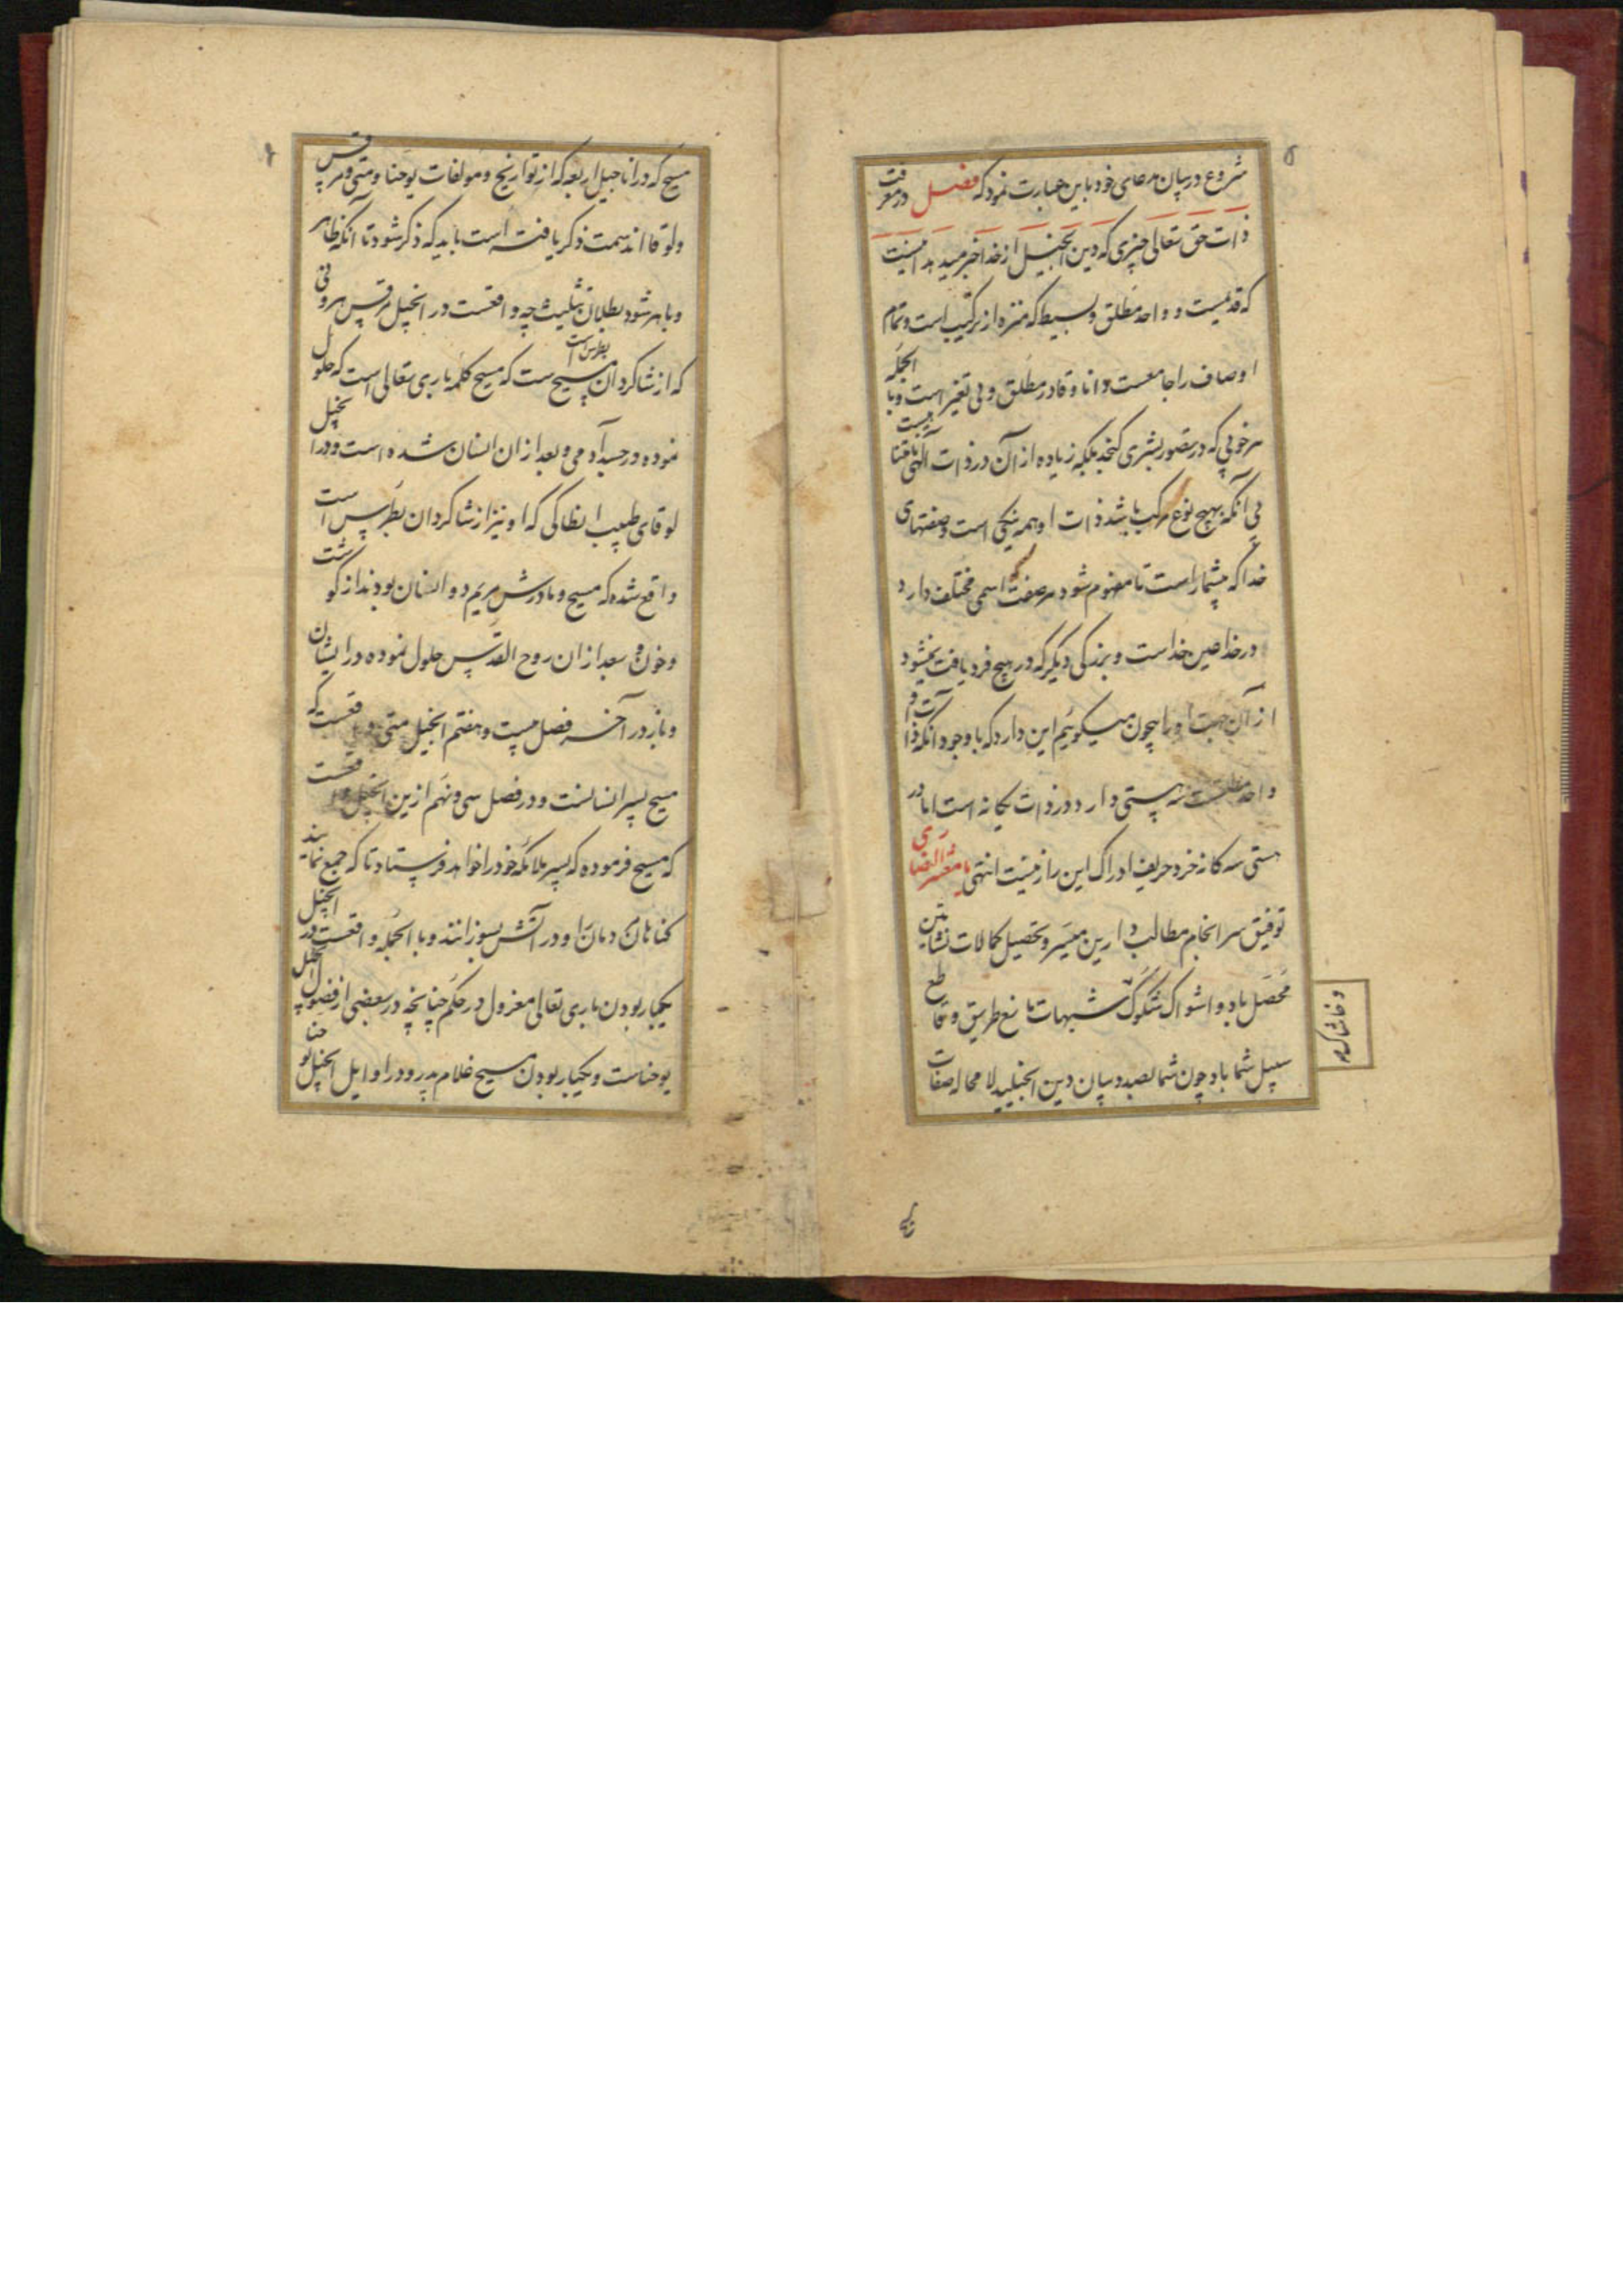 ۵
شروع در بیان مدعای خود باین عبارت نمود که فصل در معرفت
ذات حق تعالی چیزی که دین انجیل از خدا خبر میدهد اینست
که قدیمیست و واحد مطلق و بسیط که منزه از ترکیب است و تمام
اوصاف را جامعست دانا و قادر مطلق و بی تغیر است و بالجمله
هر خوبی که در تصور بشری گنجد بلکه زیاده از آن در ذات الهی یافتنیست
بی آنکه بهیچ نوع مرکب باشد ذات او همه نیکی است و صفتهای
خدا که بیشمار است تا مفهوم شود هر صفت اسمی مختلف دارد
در خدا عین خداست و بزرگی دیگر که در هیچ فرد یافت نمیشود
از آن جهت او را بیچون میگوئیم این دارد که با وجود آنکه ذات
واحد مطلقست سه هستی دارد و در ذات یکانه است اما در
هستی سه کانه خرد حریف ادراک این راز نیست انتهی یا معشر النصاری
توفیق سرانجام مطالب دارین میسر و تحصیل کمالات نشأتین
محصل باد و اشواک شکوک شبهات مانع طریق و قاطع
سبیل شما باد چون شما بصدد بیان دین انجیلید لا محاله صفات
و خاشاک
مسیح که در اناجیل اربعه که از تواریخ و مولفات یوحنا و متی و مرقس
و لوقا اند سمت ذکر یافته است باید که ذکر شود تا آنکه ظاهر
و باهر شود بطلان تثلیث چه واقعست در انجیل مرقس هرونی
که از شاگردان مسیح ست که مسیح کلمه باری تعالی است که حلول
بطرس است
نموده در جسد آدمی و بعد از ان انسان شده است و در انجیل
لوقای طبیب انطاکی که او نیز از شاگردان بطرس است
واقع شده که مسیح و مادرش مریم دو انسان بودند از گوشت
و خون و بعد از ان روح القدس حلول نموده در ایشان
و باز در آخر فصل بیست و هفتم انجیل متی واقعست که
مسیح پسر انسانست و در فصل سی و نهم ازین انجیل واقعست
که مسیح فرموده که پسر ملائکه خود را خواهد فرستاد تا که جمع نمایند
کناهان دمان او در آتش بسوزانند و بالجمله واقعست در انجیل
یکبار بودن باری تعالی معزول در حکم چنانچه در بعضی از فصول انجیل
یوحناست و یکبار بودن مسیح غلام پدر و در اوایل انجیل یوحنا